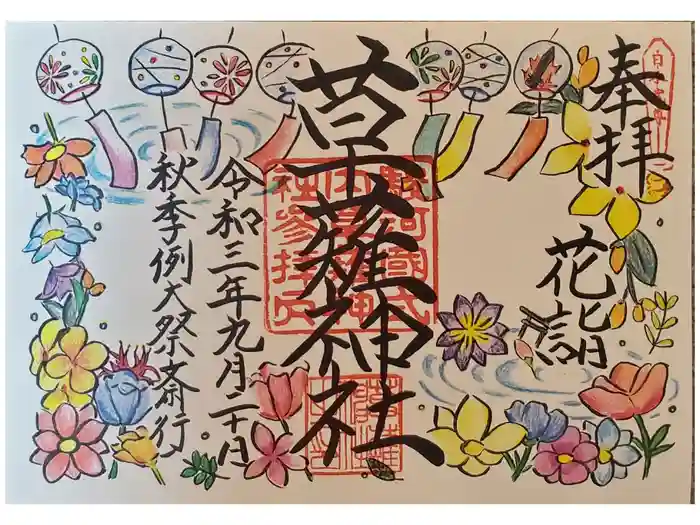 奉拝
花詣
草薙神社
令和三年九月二十日
秋季例大祭斎行